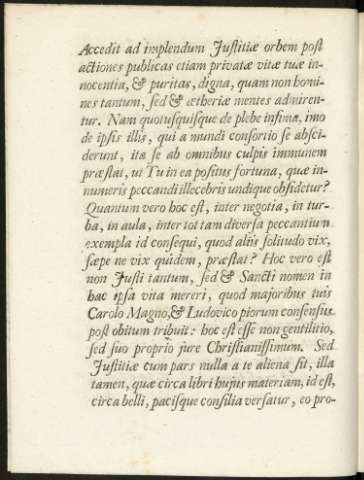 Accedit ad implendum Justitiæ orbem post
actiones publicas etiam privatæ vitæ tuæ in-
nocentia, & puritas, digna, quam non homi-
nes tantum, sed & ætheriæ mentes admiren-
tur. Nam quotusquisque de plebe infima, imo
de ipsis illis, qui a mundi consortio se absci-
derunt, ita se ab omnibus culpis immunem
præstat, ut Tu in ea positus fortuna, quæ in-
numeris peccandi illecebris undique obsidetur?
Quantum vero hoc est, inter negotia, in tur-
ba, in aula, inter tot tam diversa peccantium
exempla id consequi, quod aliis solitudo vix,
sæpe ne vix quidem, præstat? Hoc vero est
non Justi tantum, sed & Sancti nomen in
hac ipsa vita mereri, quod majoribus tuis
Carolo Magno, & Ludovico piorum consensus
post obitum tribuit: hoc est esse non gentilitio,
sed suo proprio jure Christianissimum. Sed
Justitiæ cum pars nulla a te aliena sit, illa
tamen, quæ circa libri hujus materiam, id est,
circa belli, pacisque consilia versatur, eo pro-